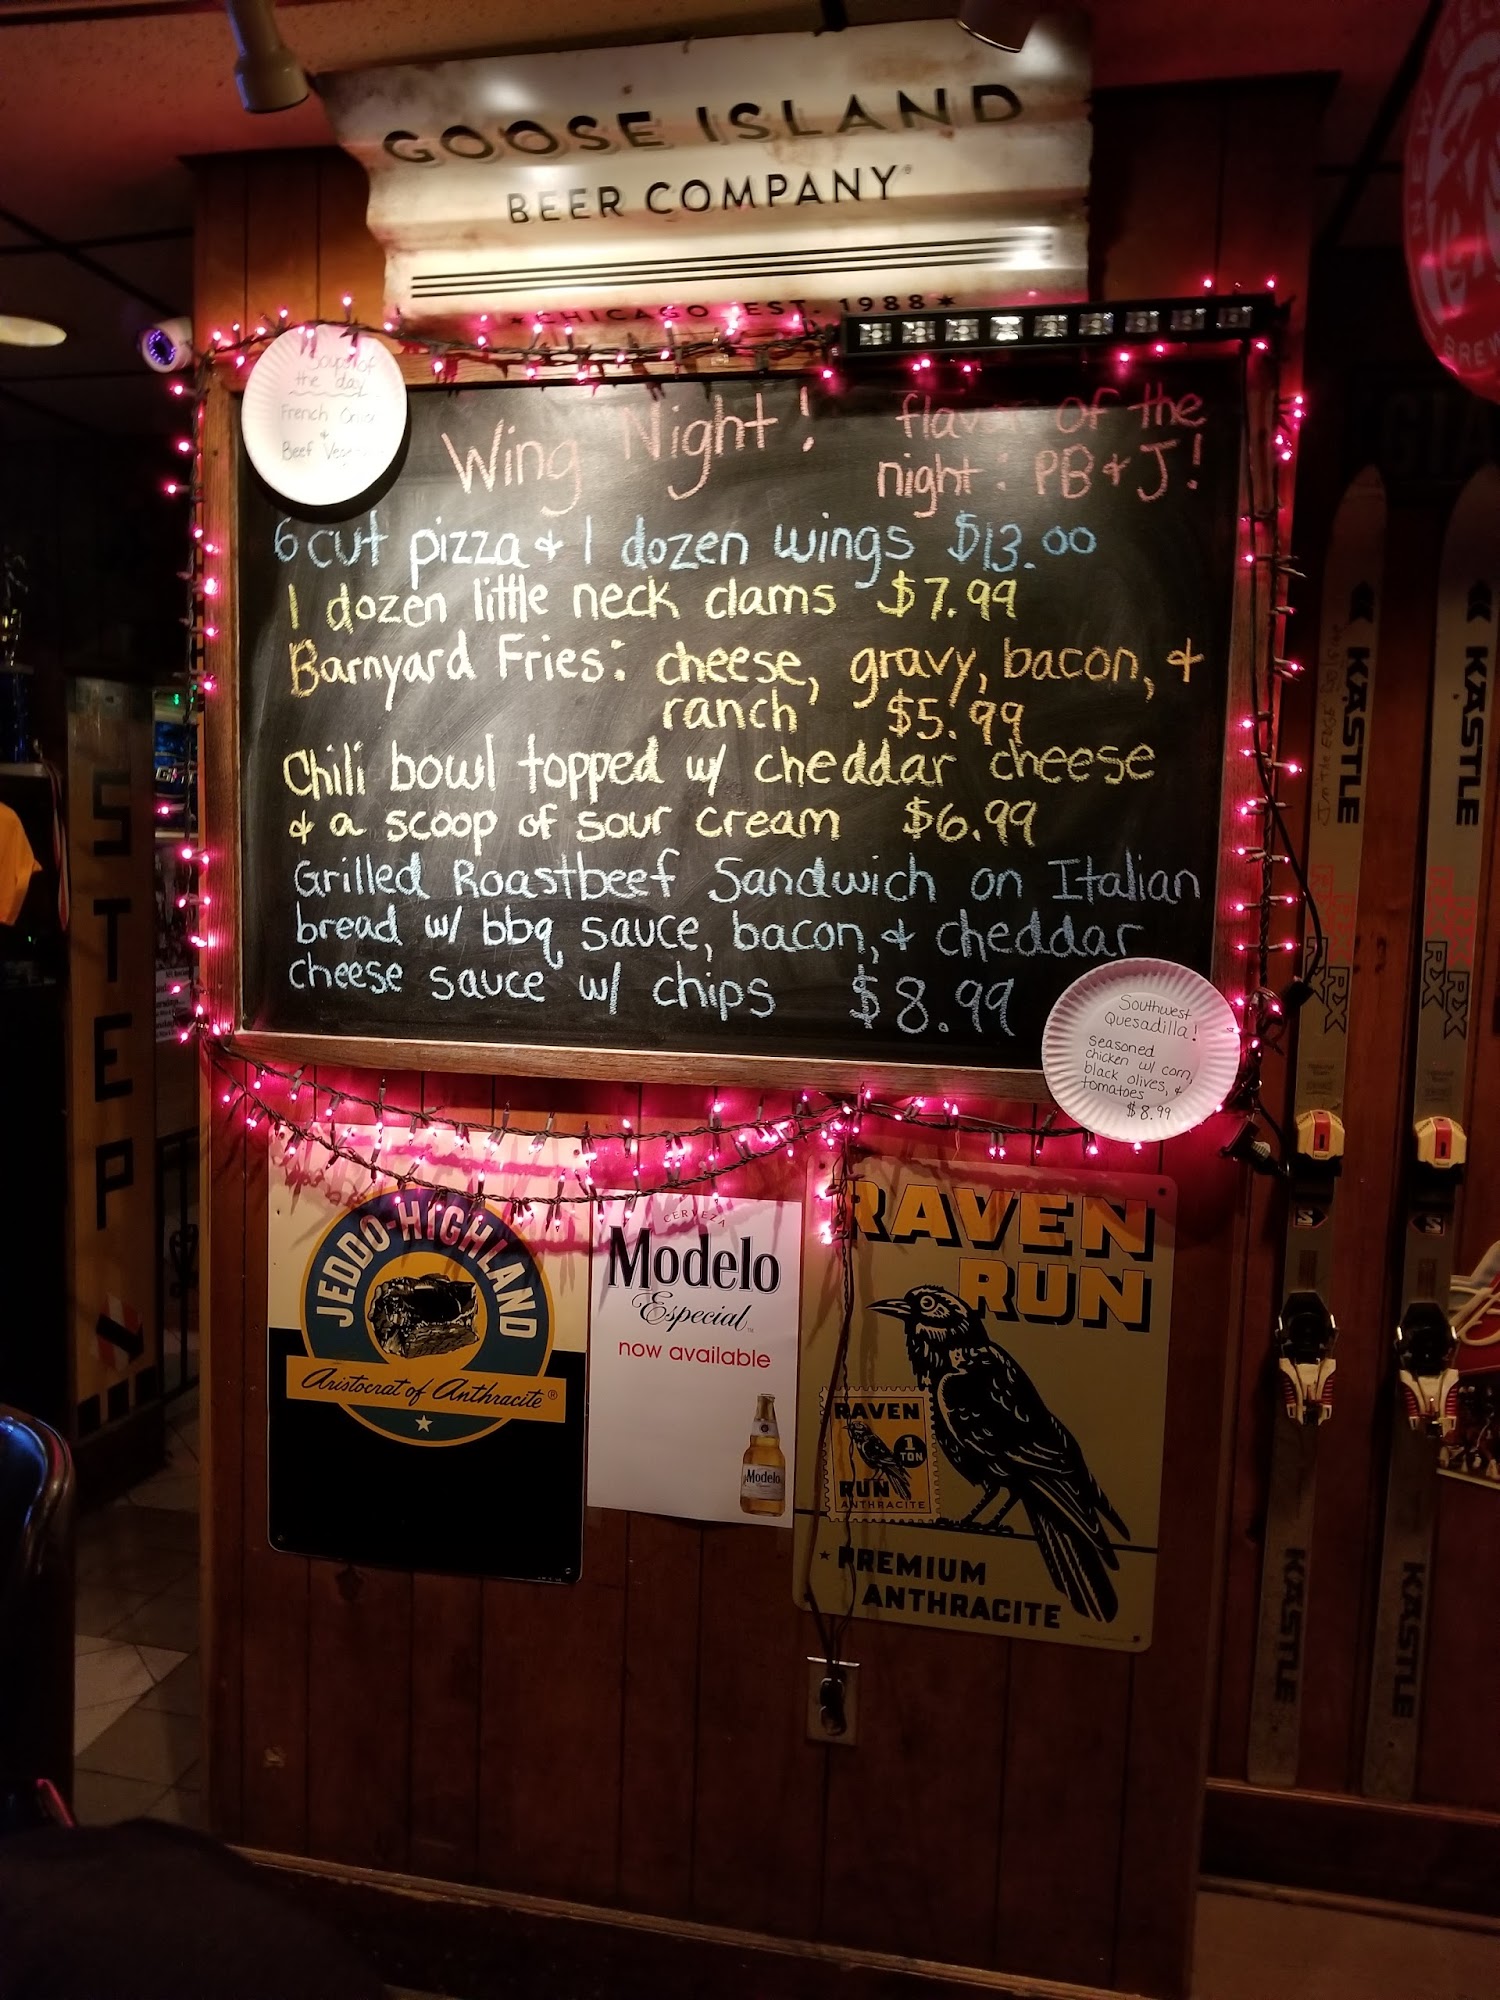 GOOSE ISLAND
BEER COMPANY®
CHICAGO EST. 1988
Soups of
the day
French Onion
+
Beef
Wing Night!
flavor of the
night: PB & J!
6 cut pizza & 1 dozen wings $13.00
1 dozen little neck clams $7.99
Barnyard Fries: cheese, gravy, bacon, &
ranch $5.99
Chili bowl topped w/ cheddar cheese
& a scoop of sour cream $6.99
Grilled Roastbeef Sandwich on Italian
bread w/ bbq sauce, bacon, & cheddar
cheese sauce w/ chips $8.99
Southwest
Quesadilla!
seasoned
chicken w/ corn,
black olives, &
tomatoes
$8.99
STEP
JEDDO-HIGHLAND
Aristocrat of Anthracite®
CERVEZA
Modelo
Especial
now available
Modelo
RAVEN
RUN
RAVEN
1
TON
RUN
ANTHRACITE
PREMIUM
ANTHRACITE
KASTLE
KASTLE
RX
RX
KASTLE
KASTLE
NEW
BREW